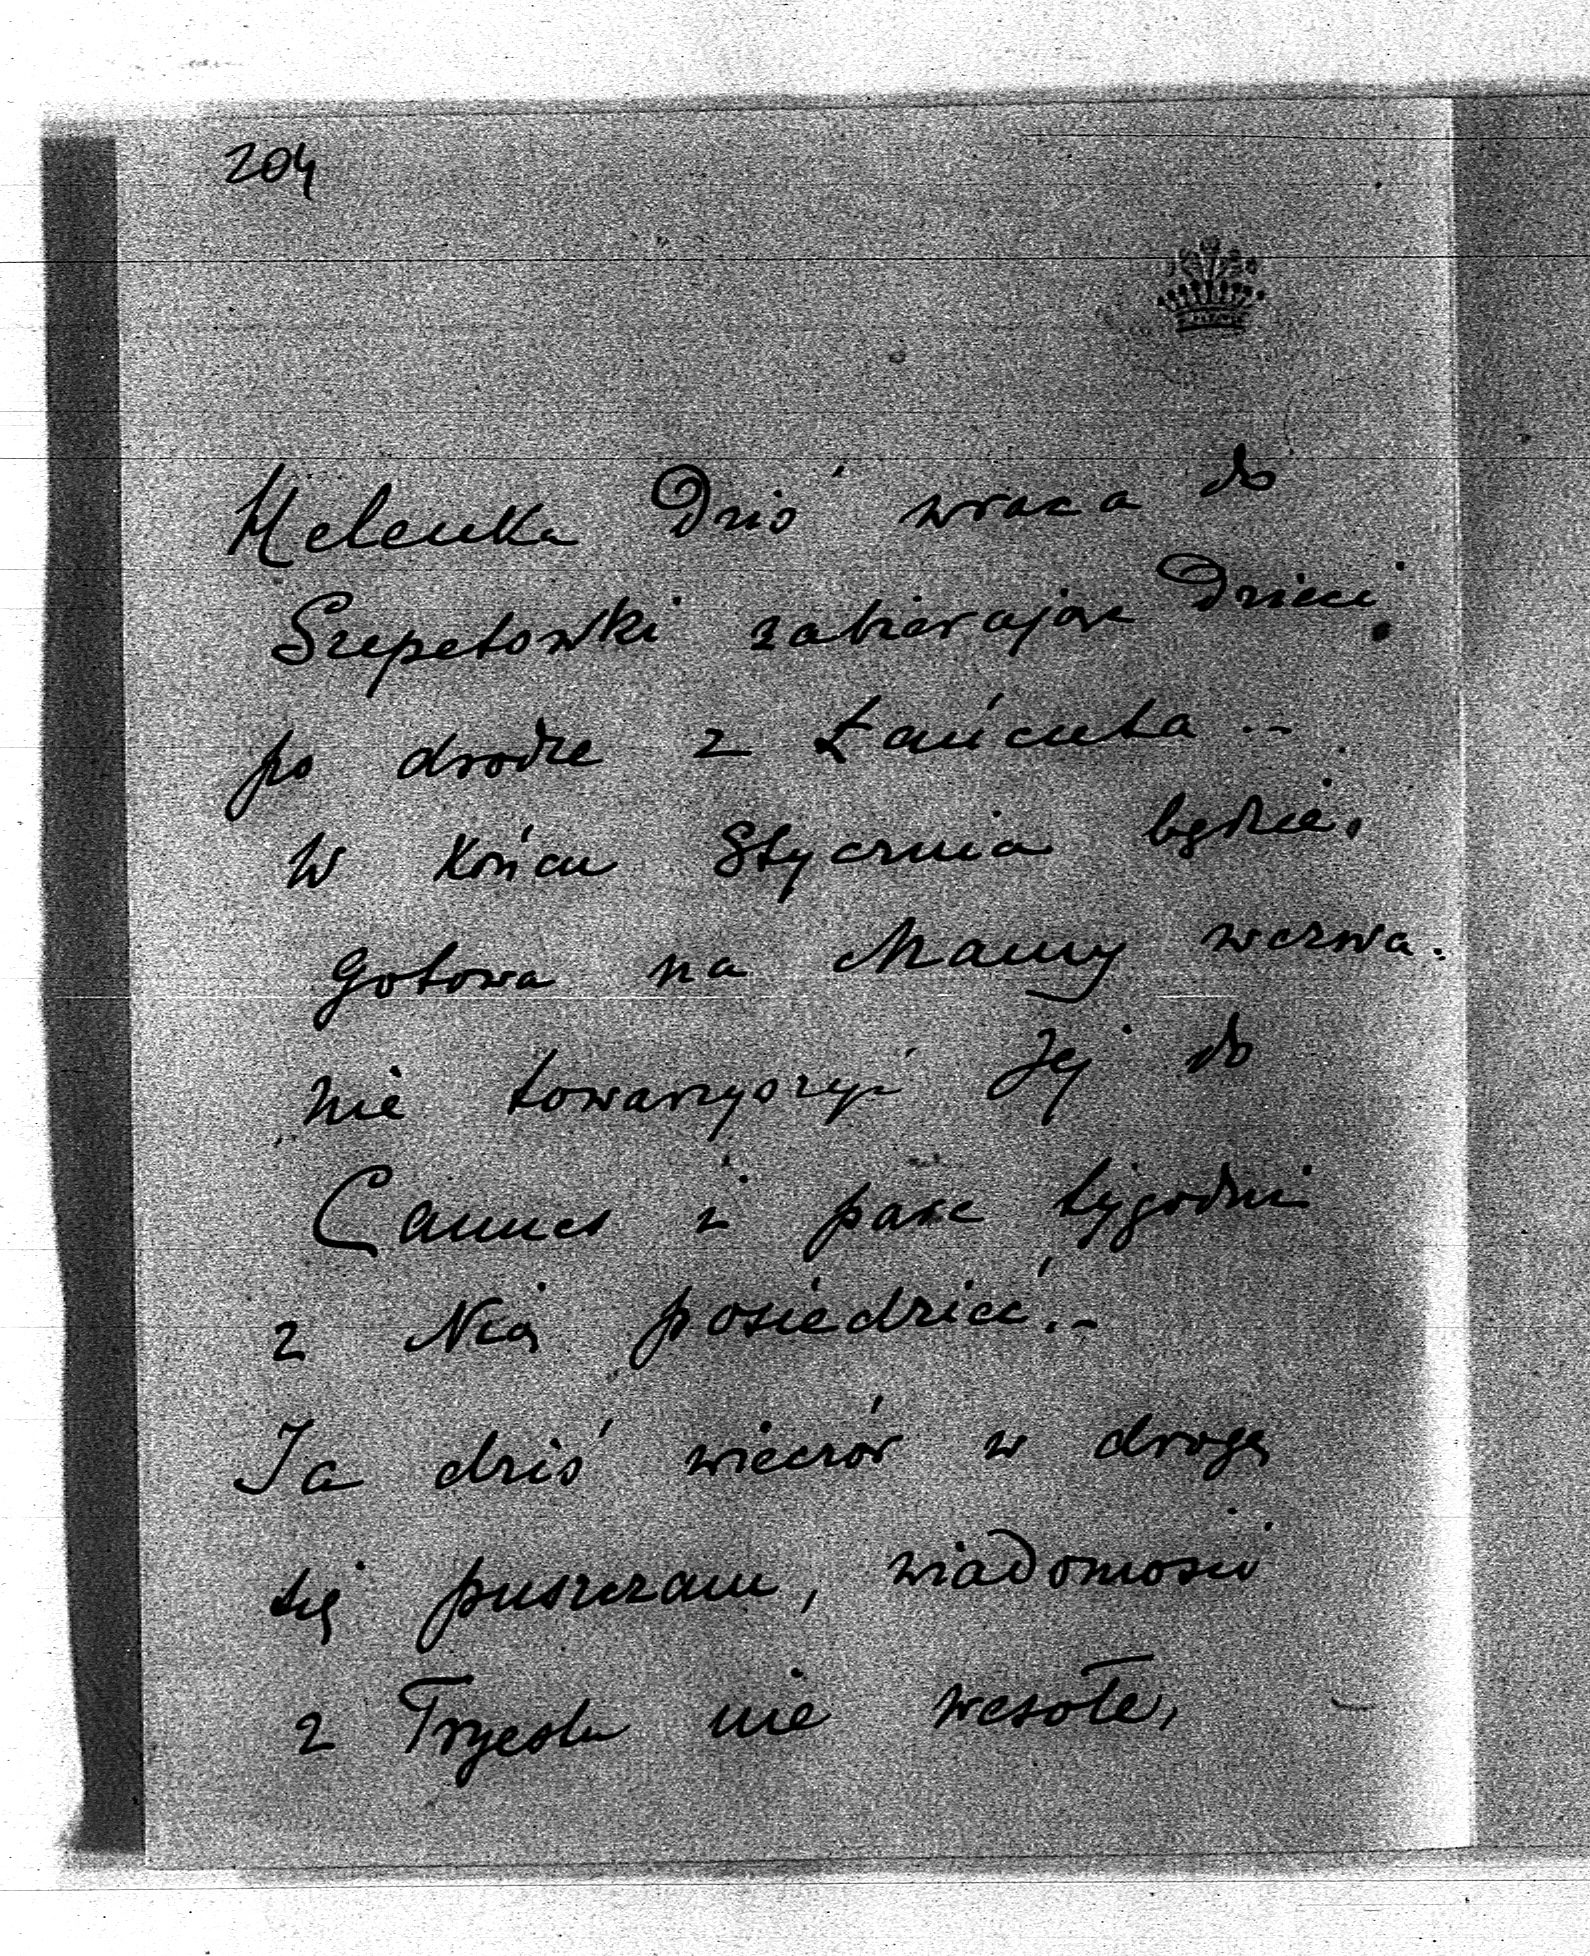 204
Helenka Dziś wraca do
Szepetowki zabierając Dzieci
po drodze z Łańcuta --
W Końcu Stycznia będzie
gotowa na Mamy wezwa-
nie towarzyszyć Jej do
Cannes i parę tygodni
z Nią posiedzieć.-
Ja dziś wieczór w drogę
się puszczam, wiadomości
z Tryestu nie wesołe,